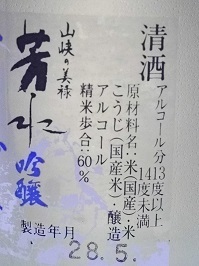 清酒
アルコール分13度以上
14度未満
原材料名:米(国産)・米
こうじ(国産米)・醸造
アルコール
精米歩合:60%
山峡の美禄
芳水
吟醸
製造年月
28.5.